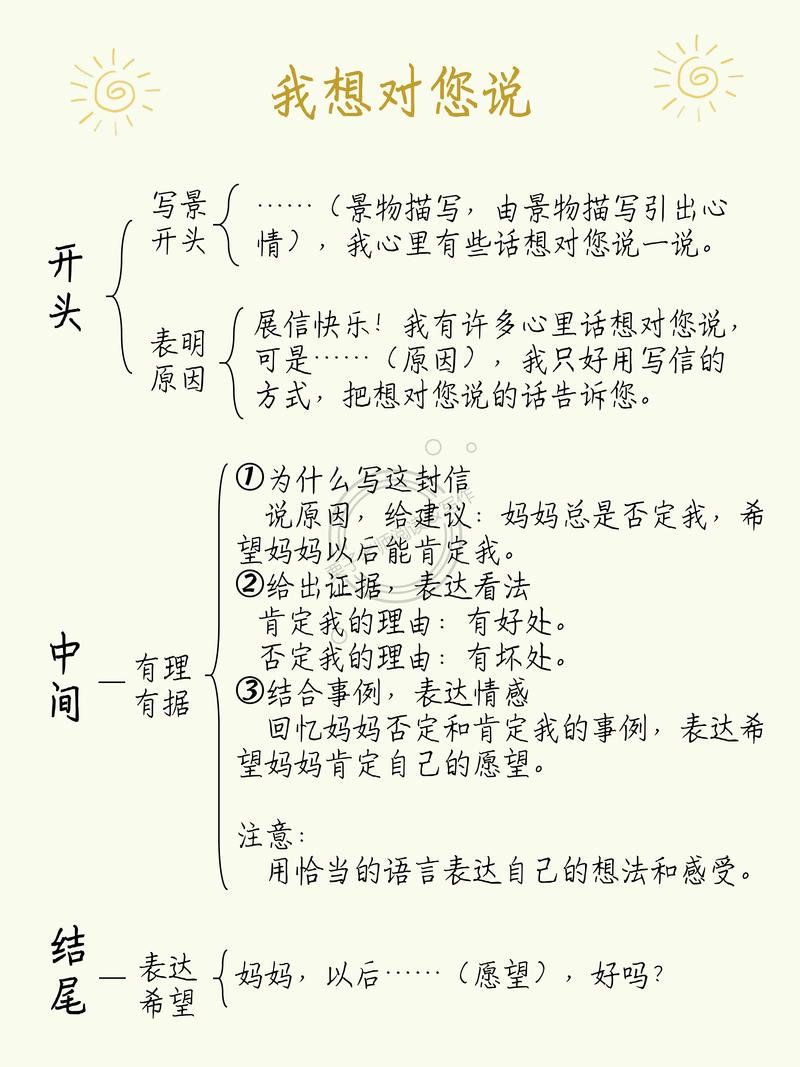 我想对您说
开头
写景
开头
……（景物描写，由景物描写引出心
情），我心里有些话想对您说一说。
表明
原因
展信快乐！我有许多心里话想对您说，
可是……（原因），我只好用写信的
方式，把想对您说的话告诉您。
中间
有理
有据
①为什么写这封信
说原因，给建议：妈妈总是否定我，希
望妈妈以后能肯定我。
②给出证据，表达看法
肯定我的理由：有好处。
否定我的理由：有坏处。
③结合事例，表达情感
回忆妈妈否定和肯定我的事例，表达希
望妈妈肯定自己的愿望。
注意：
用恰当的语言表达自己的想法和感受。
结尾
表达
希望
妈妈，以后……（愿望），好吗？